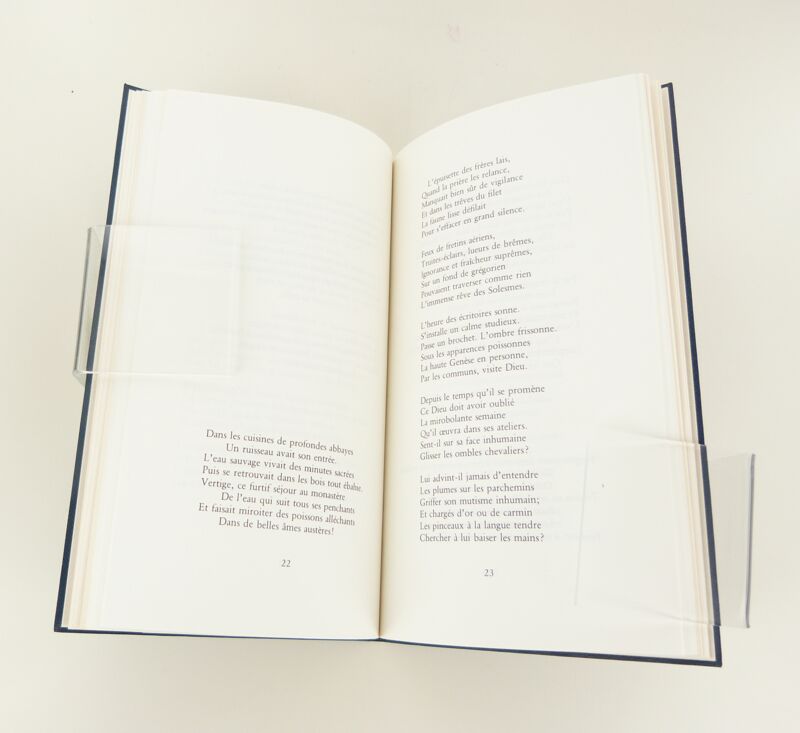 Dans les cuisines de profondes abbayes
Un ruisseau avait son entrée.
L'eau sauvage vivait des minutes sacrées
Puis se retrouvait dans les bois tout ébahie.
Vertige, ce furtif séjour au monastère
De l'eau qui suit tous ses penchants
Et faisait miroiter des poissons alléchants
Dans de belles âmes austères!
22
L'épuisette des frères lais,
Quand la prière les relance,
Manquait bien sûr de vigilance
Et dans les trêves du filet
La faune lisse défilait
Pour s'effacer en grand silence.
Feux de fretins aériens,
Truites-éclairs, lueurs de brêmes,
Ignorance et fraîcheur suprêmes,
Sur un fond de grégorien
Pouvaient traverser comme rien
L'immense rêve des Solesmes.
L'heure des écritoires sonne.
S'installe un calme studieux.
Passe un brochet. L'ombre frissonne.
Sous les apparences poissonnes
La haute Genèse en personne,
Par les communs, visite Dieu.
Depuis le temps qu'il se promène
Ce Dieu doit avoir oublié
La mirobolante semaine
Qu'il œuvra dans ses ateliers.
Sent-il sur sa face inhumaine
Glisser les ombles chevaliers?
Lui advint-il jamais d'entendre
Les plumes sur les parchemins
Griffer son mutisme inhumain;
Et chargés d'or ou de carmin
Les pinceaux à la langue tendre
Chercher à lui baiser les mains?
23